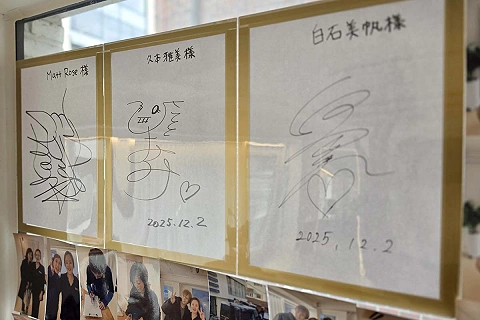 Matt Rose 様
久本雅美 様
2025.12.2
白石美帆 様
2025.12.2